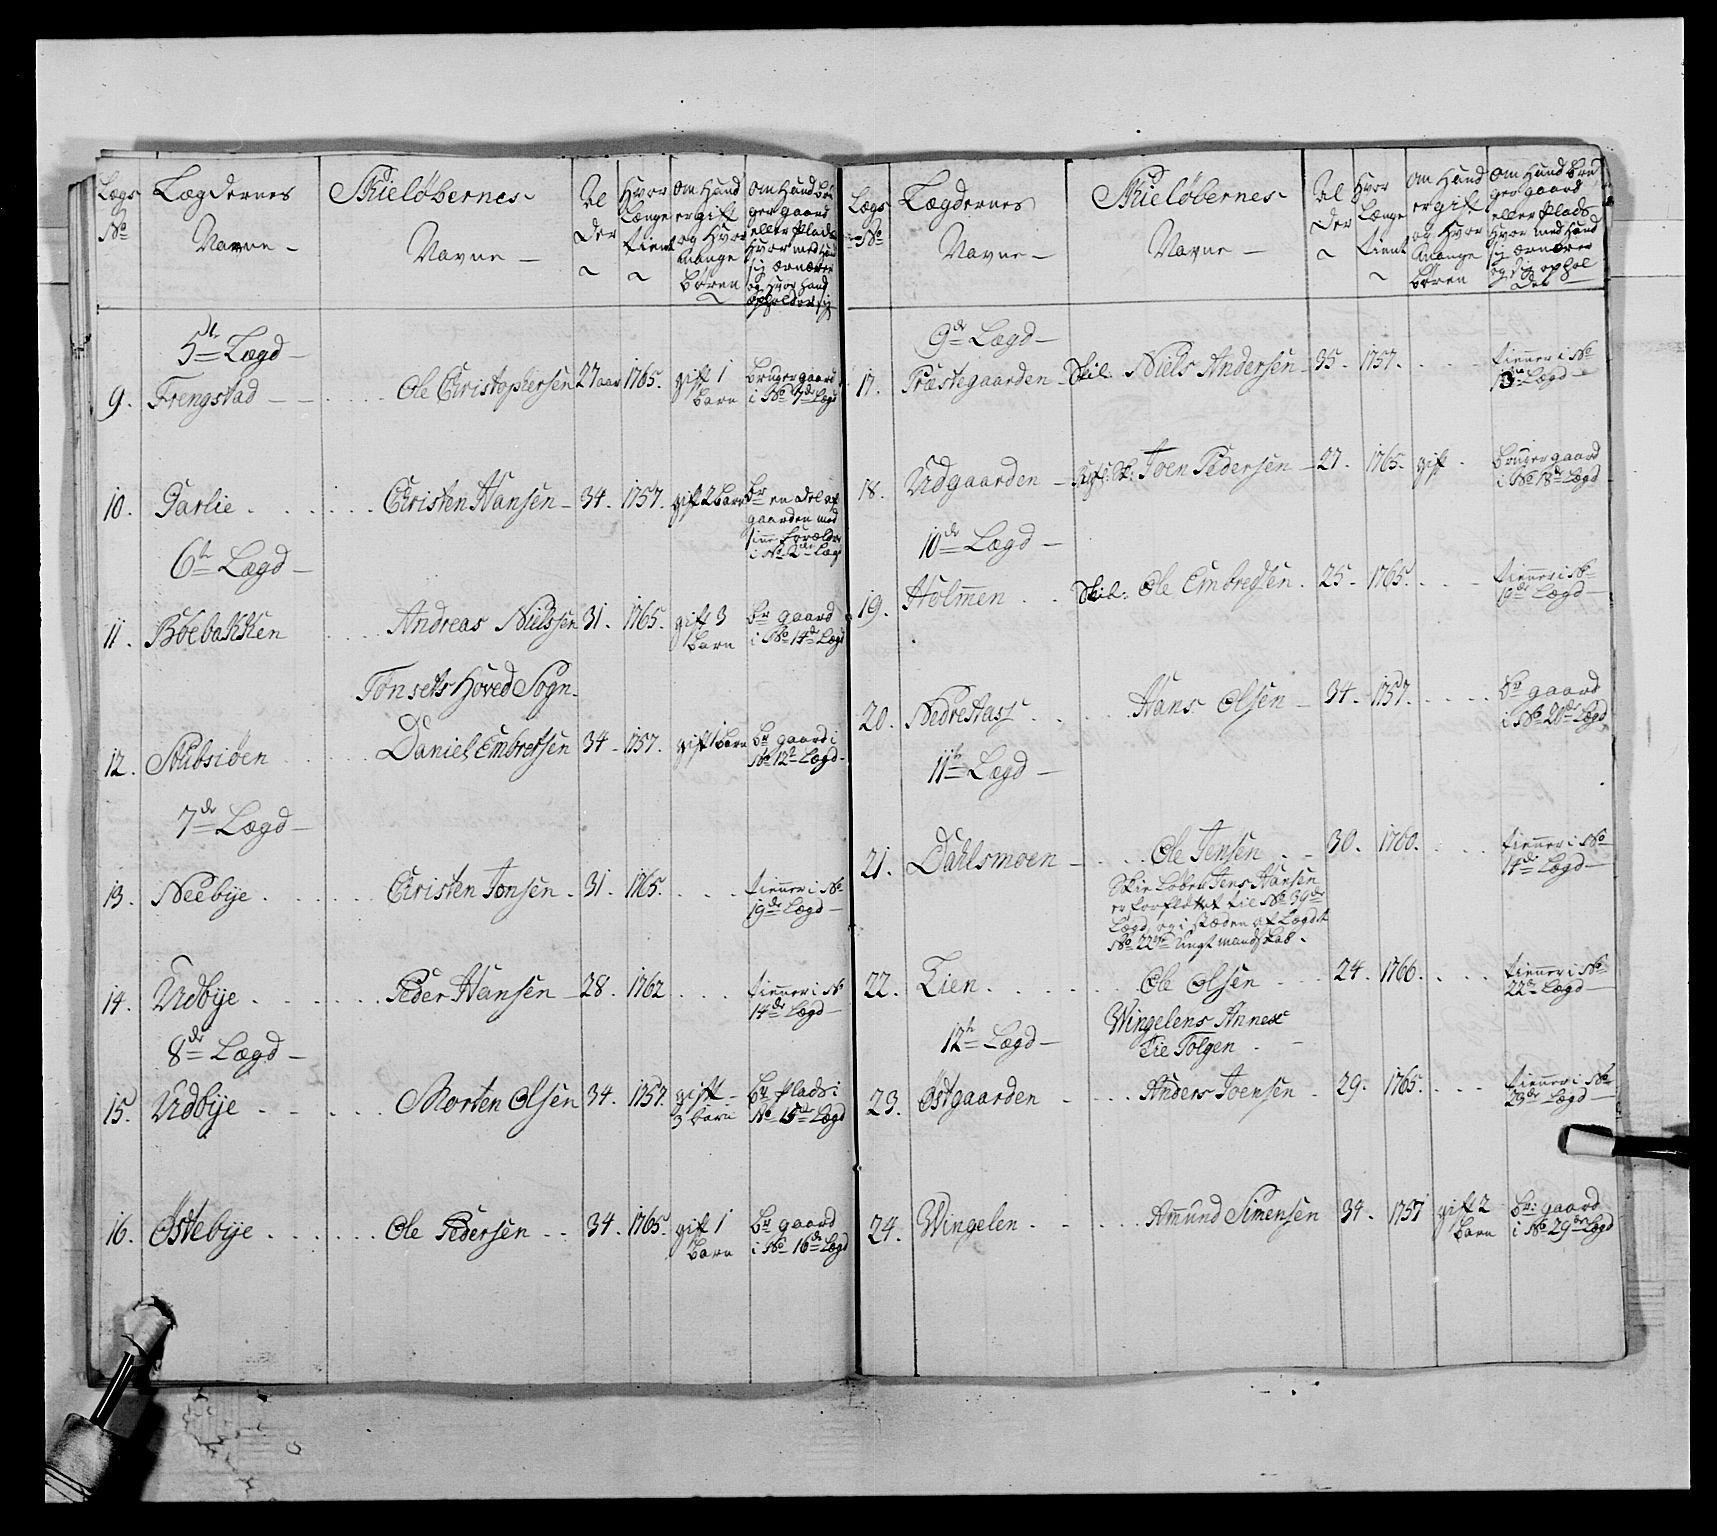 Lægs No
Lægdernes Navne -
Skieløbernes Navne -
Al der
Hvor Længe tient
om Hand er gift og Hvor mange Børen
om Hand bru ger gaard eller Plads Hvor med Hand sig ærnærer og Hvor Hand opholder sig
5te Lægd -
9. Frengstad - - . . . . Ole Christophersen 27 aar 1765. gift 1 barn bruger gaard i No 7de Lægd
10. Parlie . . . . . . . Christen Hansen - 34. 1757. gift 2 barn br en del af gaarden med sine forældre i No 2den Læg
6te Lægd -
11. Böebakken . . . . Andreas Nielssen 31. 1765. gift 3 barn br gaard i No 14de Lægd
Tönsets Hoved Sogn.
12. Stubsiöen . . . . . . Daniel Embretsen 34. 1757. gift 1 barn br gaard i No 12te Lægd -
7de Lægd -
13. Neebÿe . . . . . . Christen Jonsen . 31. 1765. . . . tienner i No 19de Lægd -
14. Udbÿe . . . . . . Peder Hansen - 28. 1762 . . . tienner i No 14de Lægd -
8de Lægd -
15. Udbÿe . . . . . . Morten Olsen 34. 1757. gift - 3 barn br Plads i No 15de Lægd
16. Östebÿe . . . . . . . Ole Pedersen . . 34. 1765. gift 1 barn br gaard i No 16de Lægd
Lægs No
Lægdernes Navne -
Skieløbernes Navne -
Al der
Hvor Længe tient
om Hand er gift og Hvor mange Børen
om Hand bru ger gaard eller Plads Hvor med Hand sig ærnærer og sig ophol der
9de Lægd -
17. Præstegaarden - Skil. Niels Andersen - 35. 1757. . . . tienner i No 13de Lægd -
18. Udgaarden - Joen Pedersen - 27. 1765. gift . bruger gaard i No 18de Lægd
10de Lægd -
19. Holmen . . Skil: Ole Embretsen . 25. 1765. . . . tienner i No 19de Lægd -
20. Nedre . . . . . Hans Olsen - 34. 1757. . . . . br gaard i No 20de Lægd
11te Lægd -
21. Dahlsmoen - . . . Ole Jensen . - 30. 1760. . . . . tienner i No 14de Lægd -
Skie Løber Jens Hansen
er forflÿttet til No 39de
Lægd, og i stæden af Lægdet
No 22de ungt mandskab .
22. Lien . . . . . . . Ole Olsen . . . 24. 1766. . . . tienner i No 22de Lægd -
12te Lægd -
Wingelens Annex
til Tolgen . -
23. Östgaarden - . . . . Anders Joensen . 29. 1765. . . . tienner i No 23de Lægd -
24. Wingelen . . . . . . . Amund Simensen 34. 1757 gift 2 barn br: gaard i No 29de Lægd